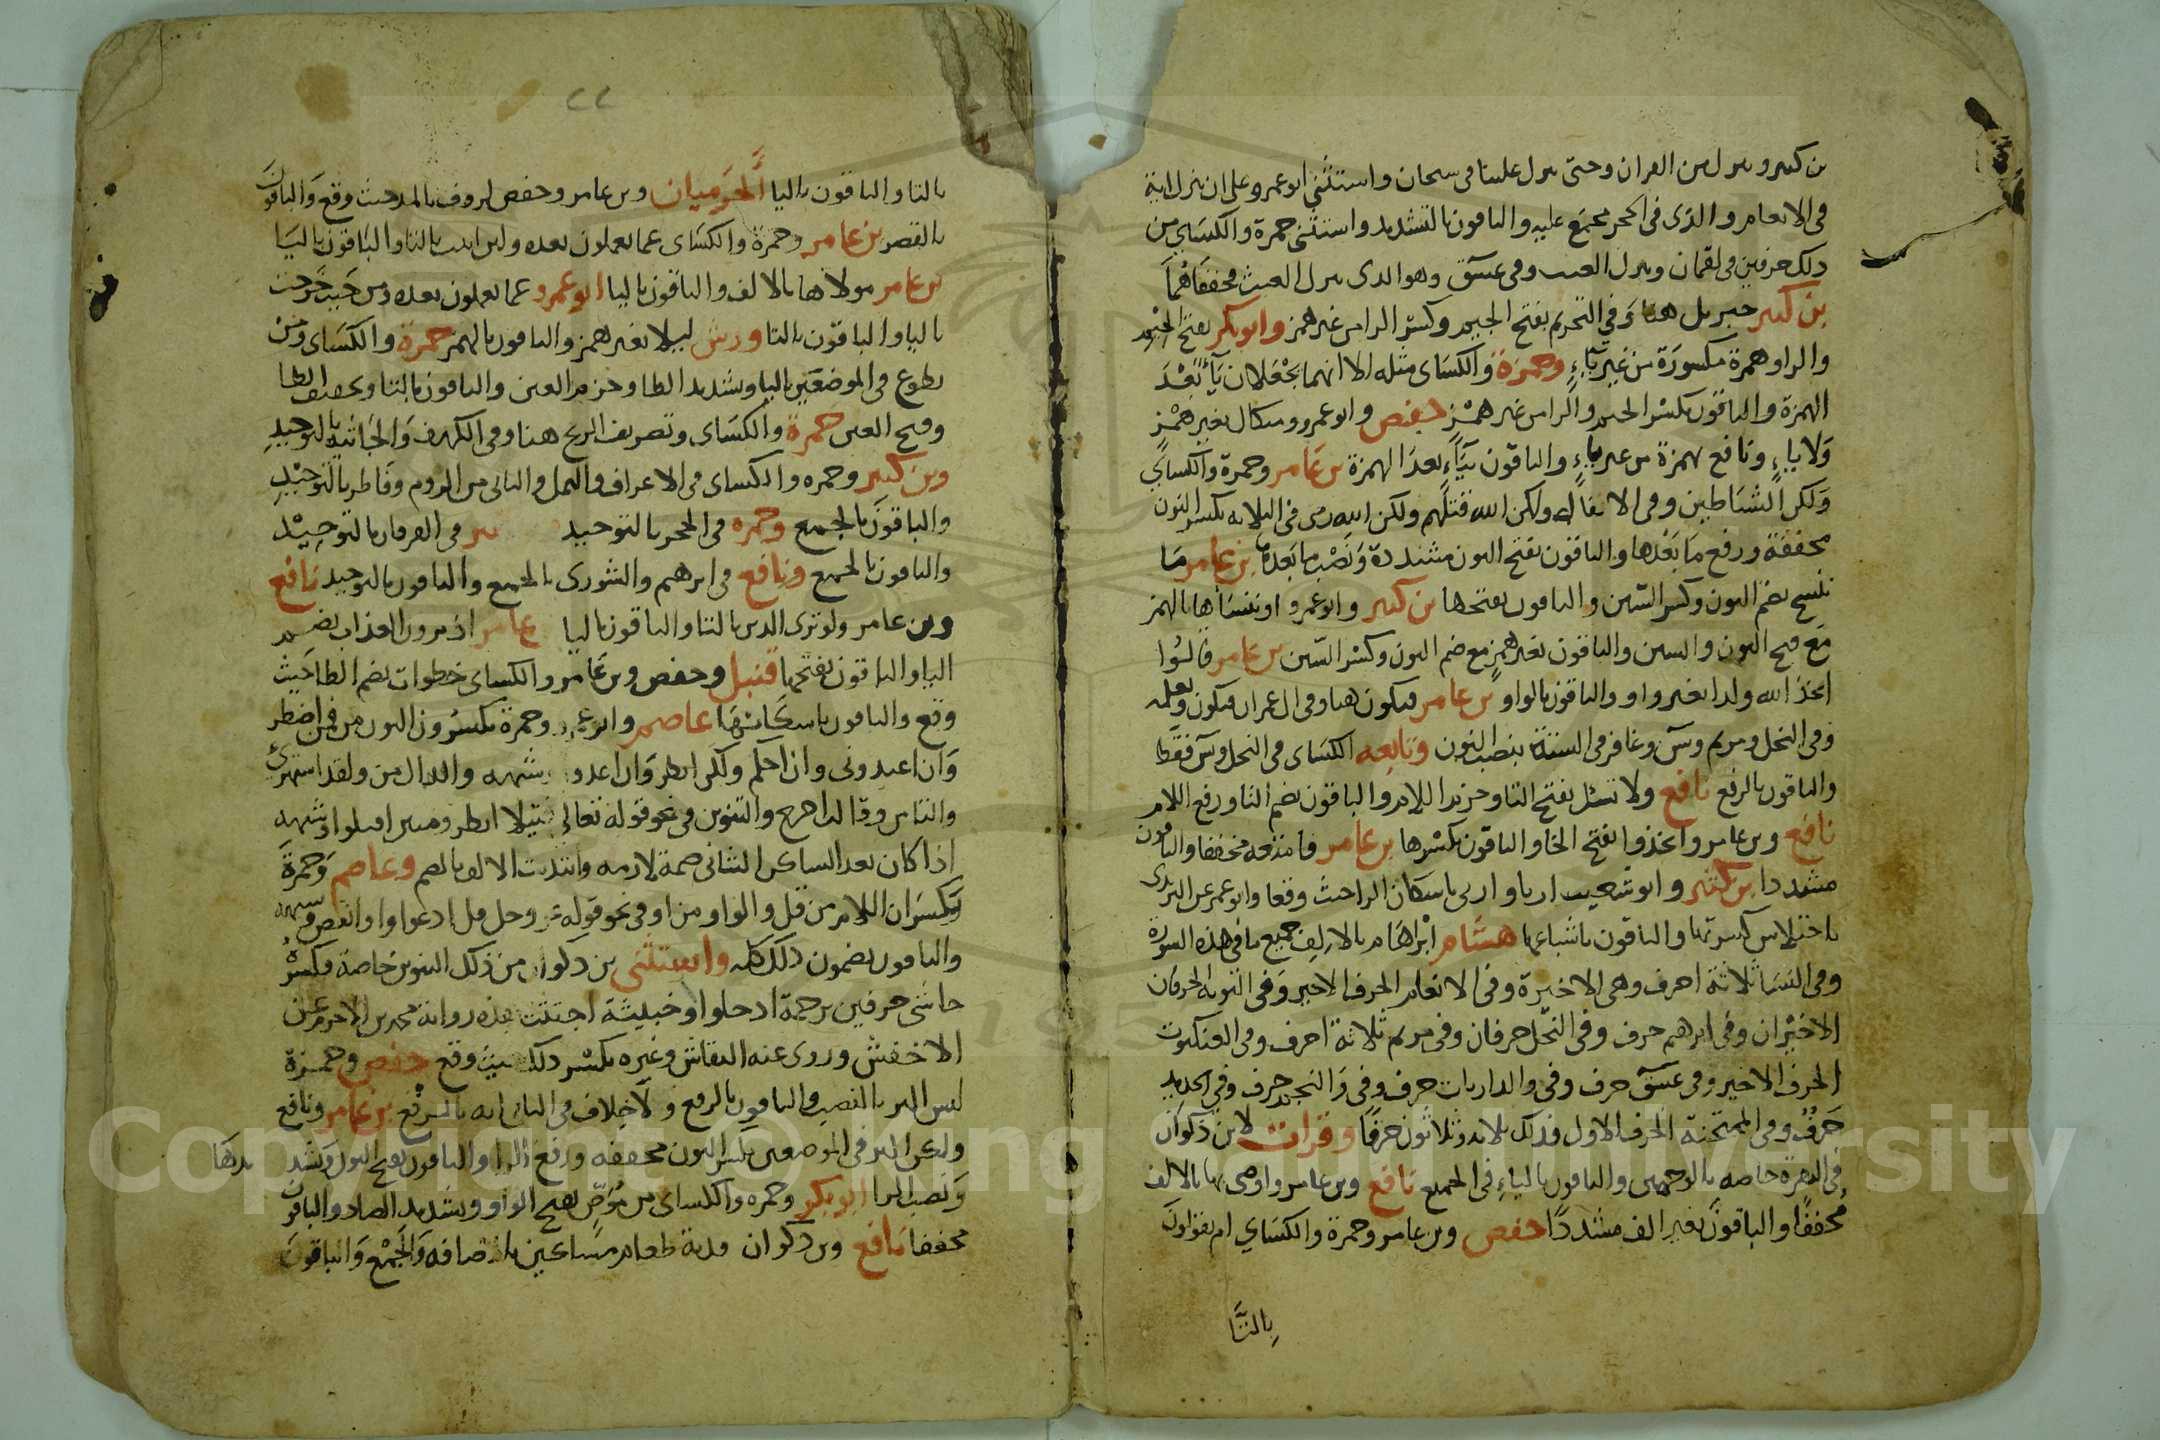 بن كثير وينزل من القران وحتى ينزل علينا في سبحان واستثنى ابو عمرو على ان ينزل اية
في الانعام والذى في الحجر مجمع عليه والباقون بالتشديد واستثنى حمزة والكسايى من
ذلك حرفين في لقمان وينزل الغيث وفي عسق وهو الذى ينزل الغيث مخففاهما
بن كثير جبريل هنا وفي التحريم بفتح الجيم وكسر الرا من غير همز وابو بكر بفتح الجيم
والرا وهمزة مكسورة من غير ياءٍ وحمزة والكساى مثله الا انهما يجعلان ياء بعد
الهمزة والباقون بكسر الجيم والرا من غير همزٍ حفص وابو عمرو وميكال بغير همزٍ
ولا ياءٍ ونافع بهمزة من غير ياءٍ والباقون بياءٍ بعد الهمزة بن عامر وحمزة والكساي
ولكن الشياطين وفي الانفال ولكن الله قتلهم ولكن الله رمى في الثلاثة بكسر النون
مخففة ورفع ما بعدها والباقون بفتح النون مشددة ونصب ما بعدها بن عامر ما
ننسخ بضم النون وكسر السين والباقون بفتحها بن كثير وابو عمرو او ننسأها بالهمز
مع فتح النون والسين والباقون بغير همزٍ مع ضم النون وكسر السين بن عامر قالوا
اتخذ الله ولدا بغير واو والباقون بالواو بن عامر فيكون هنا وفي ال عمران فيكون ونعلمه
وفي النحل ومريم ويس وغافر في الستة بنصب النون وتابعه الكساى في النحل ويس فقط
والباقون بالرفع نافع ولا تسئل بفتح التا وجزم اللام والباقون بضم التا ورفع اللام
نافع وبن عامر واتخذوا بفتح الخا والباقون بكسرها بن عامر فامتعه مخففا والباقون
مشددا بن كثير وابو شعيب ارنا وارنى باسكان الرا حيث وقعا وابو عمر عن اليزيدى
باختلاس كسرتها والباقون باشباعها هشام ابراهام بالالف جميع ما في هذه السورة
وفي النسا ثلاثة احرف وهي الاخيرة وفي الانعام الحرف الاخير وفي التوبة الحرفان
الاخيران وفي ابرهيم حرف وفي النحل حرفان وفي مريم ثلاثة احرف وفي العنكبوت
الحرف الاخير وفي عسق حرف وفي والذاريات حرف وفي والنجم حرف وفي الحديد
حرف وفي الممتحنة الحرف الاول فذلك ثلاثة وثلاثون حرفا وقرات لابن ذكوان
في البقرة خاصة بالوجهين والباقون بالياء في الجميع نافع وبن عامر واوصى بها بالالف
مخففا والباقون بغير الف مشددا حفص وبن عامر وحمزة والكساي ام يقولون
بالتا
٢٢
بالتا والباقون باليا الحرميان وبن عامر وحفص لروف بالمد حيث وقع والباقون
بالقصر بن عامر وحمزة والكساى عما تعملون بعده ولئن اتيت بالتا والباقون باليا
بن عامر مولاها بالالف والباقون باليا ابو عمرو عما يعملون بعده ومن حيث خرجت
باليا والباقون بالتا ورش ليلا بغير همز والباقون بالهمز حمزة والكساى ومن
يطوع في الموضعين باليا وتشديد الطا وجزم العين والباقون بالتا وتخفيف الطا
وفتح العين حمزة والكساى وتصريف الريح هنا وفي الكهف والجاثية بالتوحيد
وبن كثير وحمزه والكساى في الاعراف والنمل والثاني من الروم وفاطر بالتوحيد
والباقون بالجميع وحمزه في الحجر بالتوحيد ثير في الفرقان بالتوحيد
والباقون بالجميع ونافع في ابرهيم والشورى بالجميع والباقون بالتوحيد نافع
وبن عامر ولو ترى الذين بالتا والباقون باليا عامر اذ يرون العذاب بضم
اليا والباقون بفتحها قنبل وحفص وبن عامر والكساى خطوات بضم الطا حيث
وقع والباقون باسكانها عاصم وابو عمرو وحمزة يكسرون النون من فمن اضطر
وان اعبدونى وان احكم ولكن انظر وان اغدوا وشبهه والدال من ولقد استهزئ
والتا من وقالت اخرج والتنوين في نحو قوله تعالى فتيلا انظر ومبين اقتلوا وشبهه
اذا كان بعد الساكن الثاني ضمة لازمه وابتدئت الالف بالضم وعاصم وحمزة
يكسران اللام من قل والواو من او في نحو قوله عز وجل قل ادعوا او انقص وشبهه
والباقون بضمون ذلك كله واستثنى بن ذكوان من ذلك التنوين خاصة فكسره
حاشى حرفين برحمة ادخلوا وخبيثة اجتثت هذه رواية محمد بن الاخرم عن
الاخفش وروى عنه النقاش وغيره بكسر ذلك حيث وقع حفص وحمزة
ليس البر بالنصب والباقون بالرفع ولا خلاف في الثانى انه بالرفع بن عامر ونافع
ولكن البر في الموضعين بكسر النون مخففه ورفع الرا والباقون بفتح النون وتشديدها
ونصب الرا ابو بكر وحمزه والكساى من موصٍ بفتح الواو وتشديد الصاد والباقون
مخففا نافع وبن ذكوان فدية طعام مساكين بالاضافه والجمع والباقون
Copyright © King Saud University